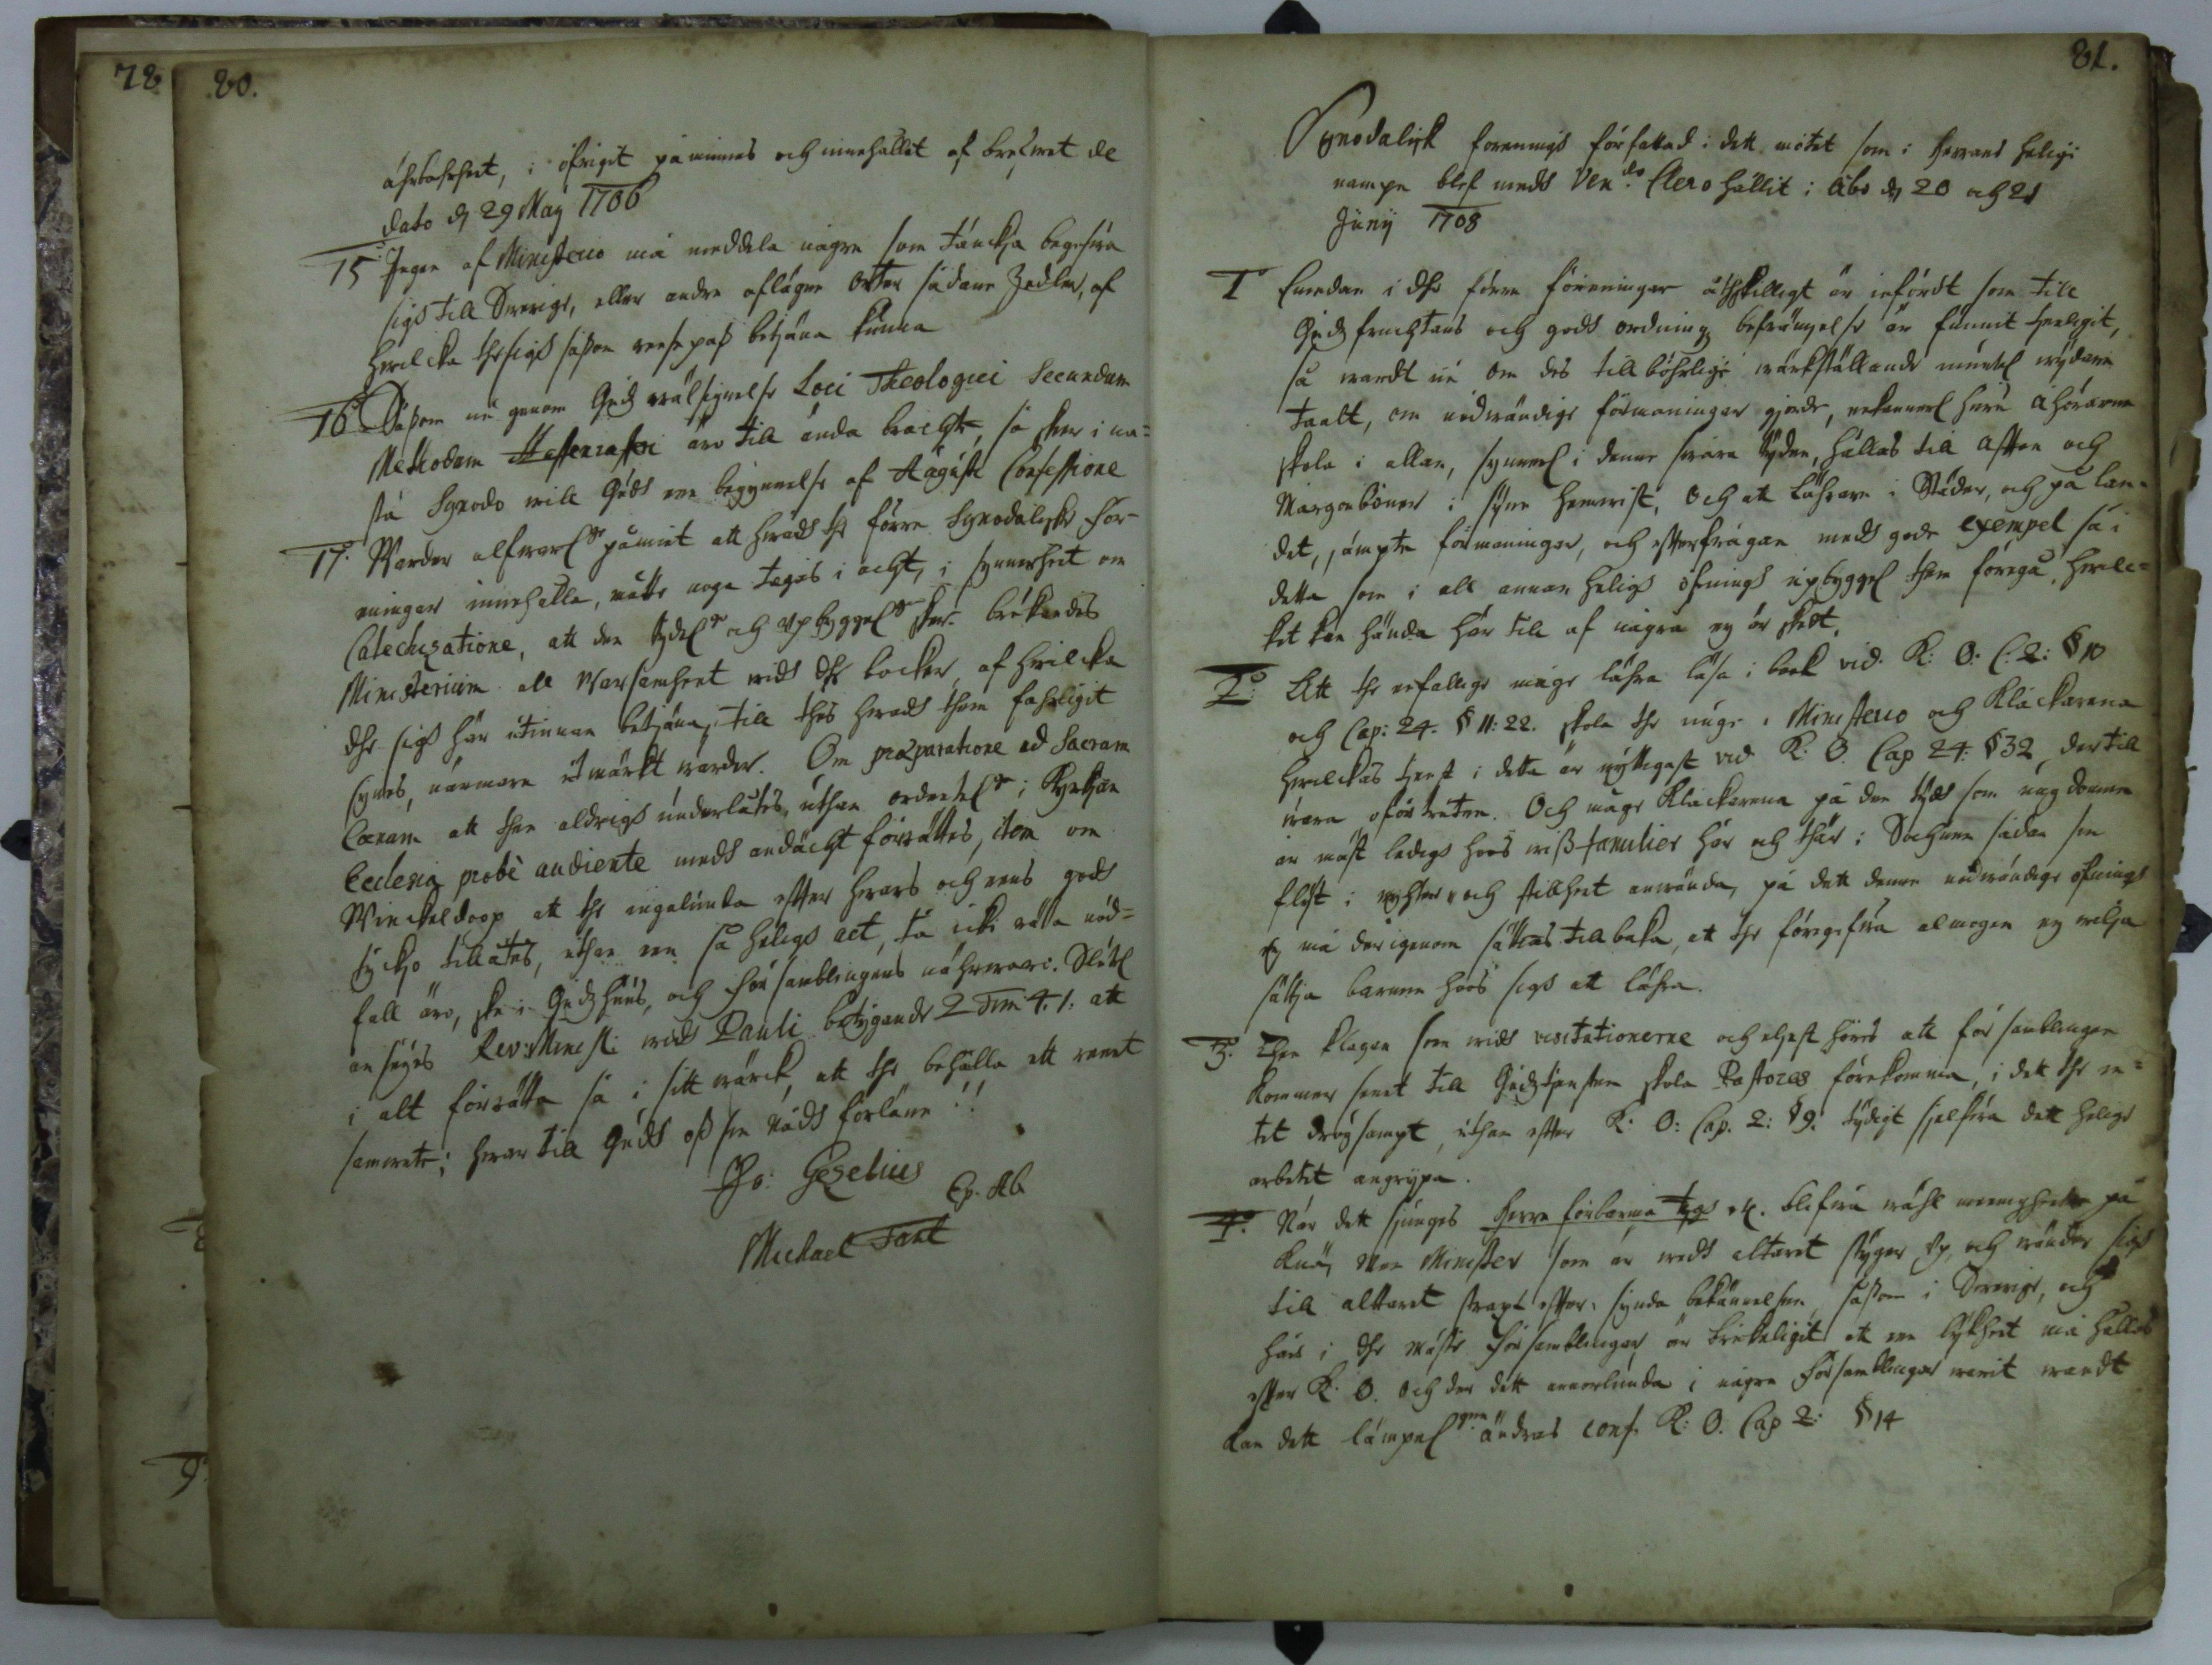 78
80.
ährbahrheet, i öfrigit påminnes och innehållet af brefwet de
dato d. 29 Maij 1706
15 Ingen af Ministerio må meddela någre som tänckja begifwa
sigh till Swerige, eller andre aflägne Orter sådane Zedler, af
hwilcka the sigh såsom reesepass betjäna kunna
16 Såsom nu genom Gudz wälsignelse Loci Theologici Secundum
Methodum äro till ända bracht, så skeer i nä=
sta Synodo will Gudh een begynnelse af August Confessione
17. Warder alfwarl. påmint att hwadh the förre Synodaliske För-
eningar innehålla, måtte noga tagas i acht, i synnerheet om
Catechizatione, att den tydel. och Upbyggel. skeer. brukandes
Ministerium all warsamheet widh the böcker, af hwilcka
the sigh här utinnan betjäna, till thes hwadh them farligit
synes, närmare utmärkt warder. Om præparatione ad Sacram
Cœnam att then aldrigh underlåtes, uthan ordentel. i Kyrkjan
Ecclesia probè audiente medh andächt förrättes, item om
Winckeldoop att the ingalunda efter hwars och eens godh
tyckjo tillåtas, uthan een så heligh act, tå icke rätta nöd=
fall äro, skee i Gudz huus, och Församblingens nährwaro. Slutl.
ansees Rev: Minist: widh Pauli betygande 2 Tim 4. 1. att
i alt förrätta så i sitt wärck, att the behålla ett reent
samwete; hwar till Gudh oss sin nådh förläne!!
Jo: Gezelius
Ep. Ab
Michael Fant
81.
Synodalisk föreningh författad i dett mötet som i Herrans heliga
nampn blef medh Ven.do Clero hållit i Åbo d. 20 och 21
Junij 1708
1 Emedan i the förre föreningar åthskilligt är infördt som till
Gudz fruchtans och godh ordningz befrämjelse är funnit tienligit,
så wardt nu om des tillbörlige wärkställande muntel. wydare
taalt, om nödwändige förmaningar giorde, huru Åhörarne
skola i allan, synnerl. i denne swåra tyden, hållas till Afton och
Morgonböner i syne hemwist, Och at Lährare i Städer, och på Lan-
det, jämpte förmaningar, och efterfrågan medh gode exempel så i
detta som i all annan heligh öfningh upbyggel. them föregå, hwilc=
ket kan hända här till af någre ej är skedt.
2. Att the enfallige måge lähra läsa i book vid. K: O: C: 2: § 10
och Cap: 24. § 11: 22. skola the unge i Ministerio och Klåckarena
hwilckas tienst i detta är nyttigast vid K. O. Cap 24: §32, der till
wara oförtrutne. Och måge Klåckarena på den tydh som ungdomen
är mäst ledigh hoos wisse familier här och thär i Sochnen sådan sin
flyt i nychter och stillheet anwända, på dett denne nödwändige öfningh
ey må derigenom sättias tillbaka, at the föregifwa almogen ey wilja
sättja barnen hoos sigh att lähra.
3. Then klagan som widh visitationerne och eljest höres att församblingen
kommer seent till Gudztjensten skola Pastores förekomma, i dett the in=
tet drögsampt, uthan efter K: O: Cap. 2: §9. tydigt sjelfwa dett heliga
arbetet angrypa.
4. När dett sjunges Herre förbarma tigh etc. blifwa wähl på
Knä, Men Minister som är widh altaret styger Up, och wänder sigh
till altaret strax efter synda bekännelsen, såsom i Swerige, och
här i the mäste församblingar är brukeligit at een lykheet må hållas
efter K: O. Och der dett annorlunda i någre Församblingar warit wandt
kan dett lämpel. ändras conf. K: O. Cap 2: § 14